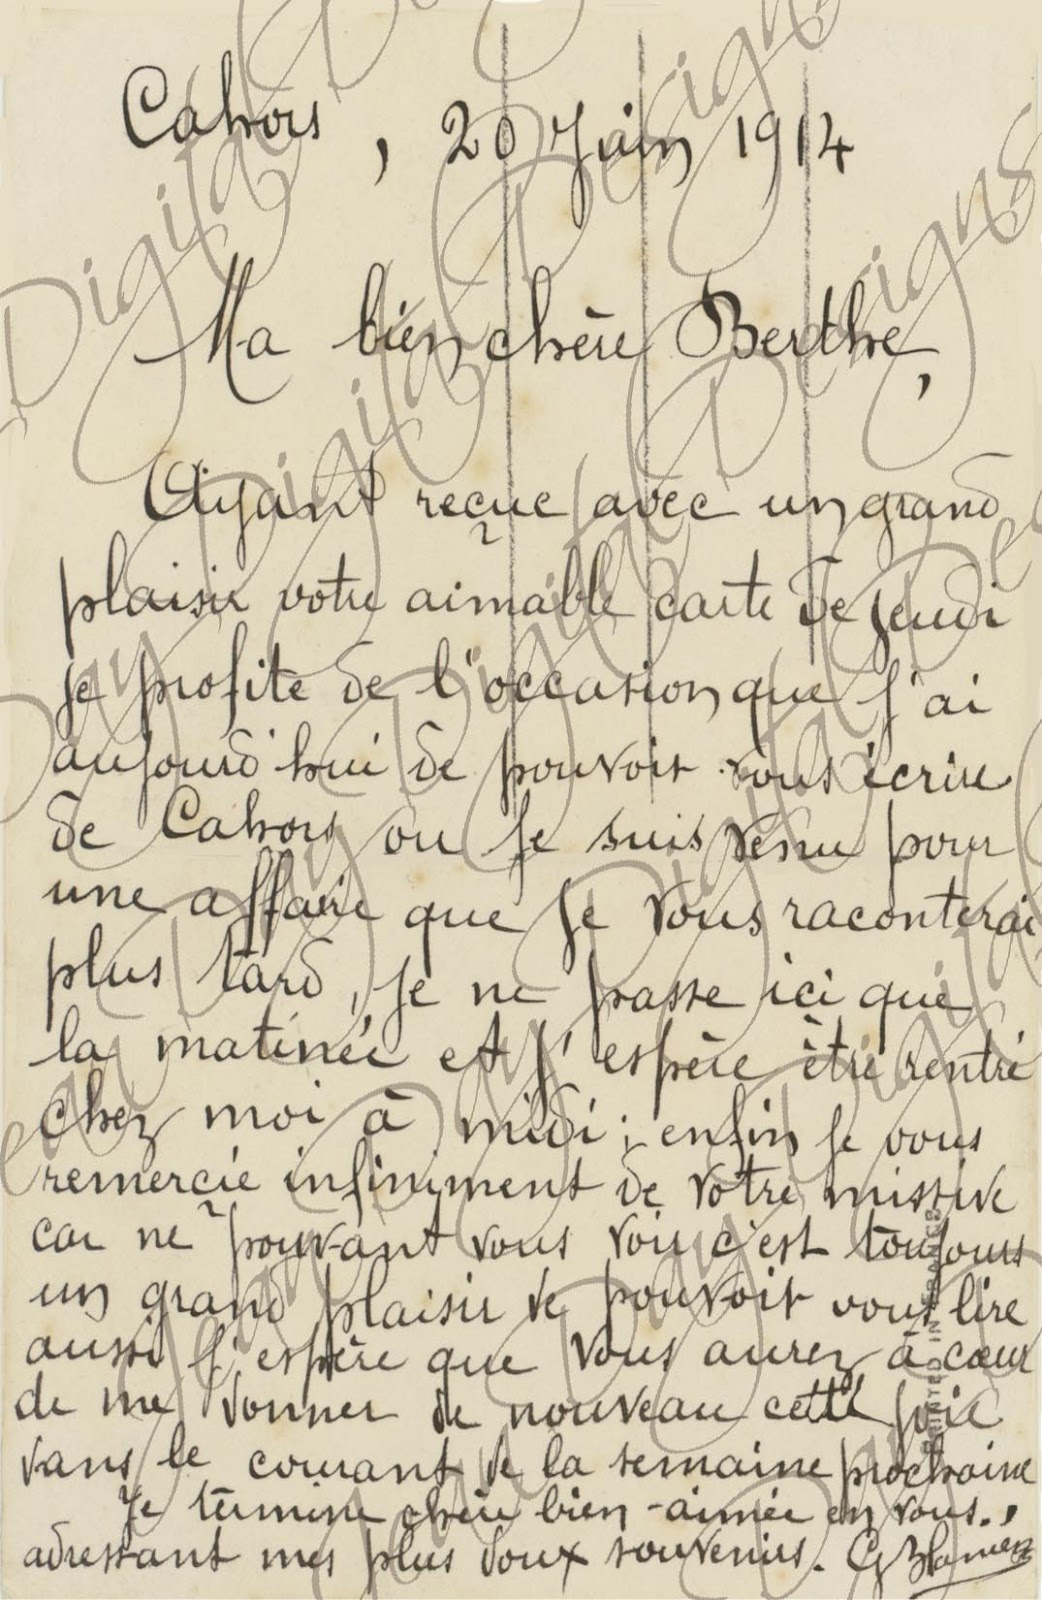 Cahors, 20 Juin 1914
Ma bien chère Berthe,
Ayant reçue avec un grand
plaisir votre aimable carte de jeudi
je profite de l'occasion que j'ai
aujourd'hui de pouvoir vous écrire
de Cahors ou je suis venu pour
une affaire que je vous raconterai
plus tard, je ne passe ici que
la matinée et j'espère être rentré
chez moi à midi; enfin je vous
remercie infiniment de votre missive
car ne pouvant vous voir c'est toujours
un grand plaisir de pouvoir vous lire
aussi j'espère que vous aurez à cœur
de me donner de nouveau cette joie
dans le courant de la semaine prochaine
Je termine chère bien-aimée en vous
adressant mes plus doux souvenirs. G
PRINTED IN FRANCE